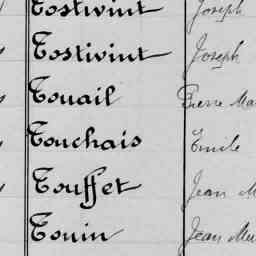 Tostivint Joseph
Tostivint Joseph
Touail Pierre Ma
Touchais Emile
Touffet Jean M
Touin Jean Ma